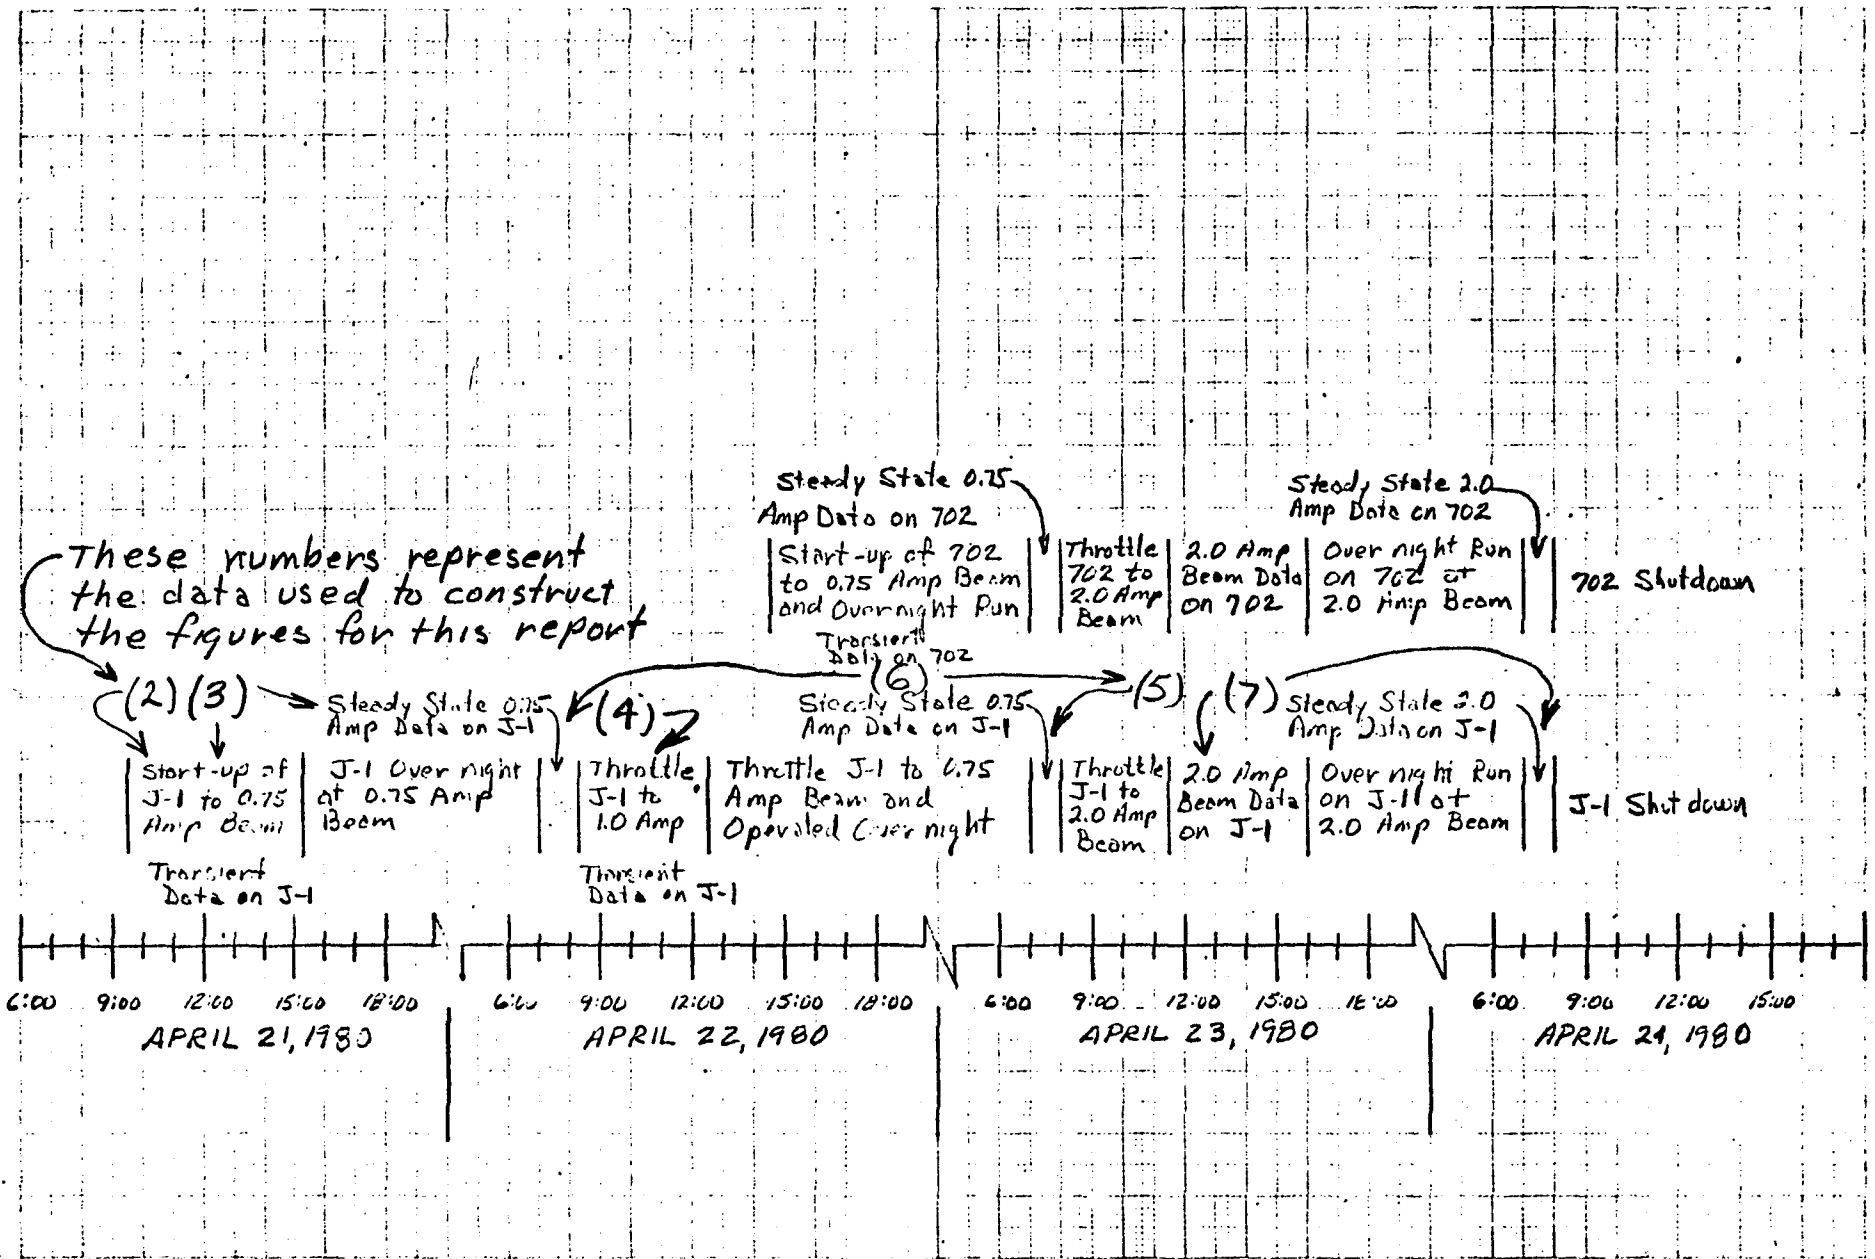 Steady State 0.75
Amp Data on 702
Steady State 2.0
Amp Data on 702
These numbers represent
the data used to construct
the figures for this report
Start-up of 702
to 0.75 Amp Beam
and Overnight Run
Throttle
702 to
2.0 Amp
Beam
2.0 Amp
Beam Data
on 702
Over night Run
on 702 at
2.0 Amp Beam
702 Shutdown
Transient
Data on 702
(2) (3)
(4)
(6)
(5)
(7)
Steady State 0.75
Amp Data on J-1
Steady State 0.75
Amp Data on J-1
Steady State 2.0
Amp Data on J-1
Start-up of
J-1 to 0.75
Amp Beam
J-1 Over night
at 0.75 Amp
Beam
Throttle
J-1 to
1.0 Amp
Throttle J-1 to 0.75
Amp Beam and
Operated Over night
Throttle
J-1 to
2.0 Amp
Beam
2.0 Amp
Beam Data
on J-1
Over night Run
on J-1 at
2.0 Amp Beam
J-1 Shut down
Transient
Data on J-1
Transient
Data on J-1
6:00 9:00 12:00 15:00 18:00 6:00 9:00 12:00 15:00 18:00 6:00 9:00 12:00 15:00 18:00 6:00 9:00 12:00 15:00
APRIL 21, 1980 APRIL 22, 1980 APRIL 23, 1980 APRIL 24, 1980